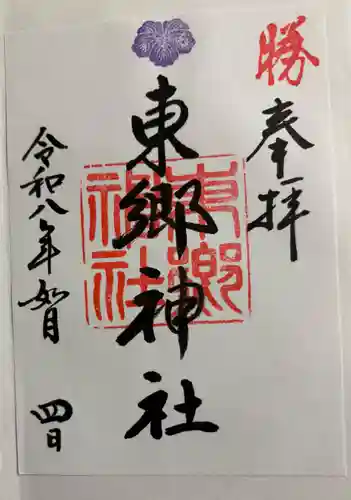 勝
奉拝
東郷神社
東郷
神社
令和八年如月四日